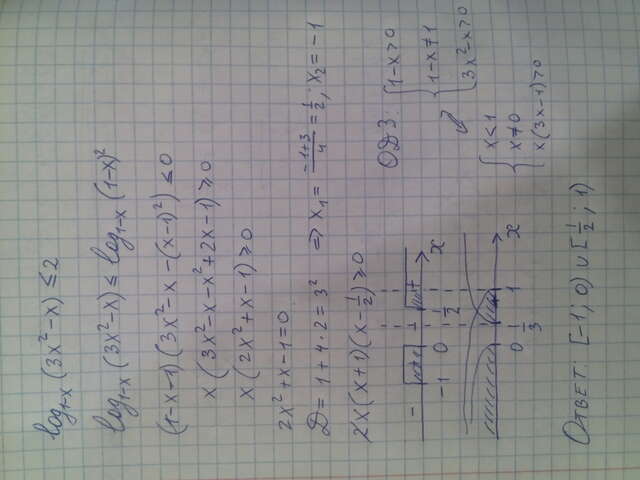 log₁₋ₓ (3x²-x) ≤ 2
log₁₋ₓ (3x²-x) ≤ log₁₋ₓ (1-x)²
(1-x-1)(3x²-x-(x-1)²) ≤ 0
x(3x²-x-x²+2x-1) ≥ 0
x(2x²+x-1) ≥ 0
2x²+x-1=0
D = 1+4·2 = 3² ⇒ x₁ = (-1+3)/4 = 1/2; x₂ = -1
2x(x+1)(x-1/2) ≥ 0
ОДЗ: { 1-x>0
1-x≠1
3x²-x>0
{ x<1
x≠0
x(3x-1)>0
- + - +
-1 0 1/2 x
0 1/3 1 x
Ответ: [-1; 0) ∪ [1/2; 1)